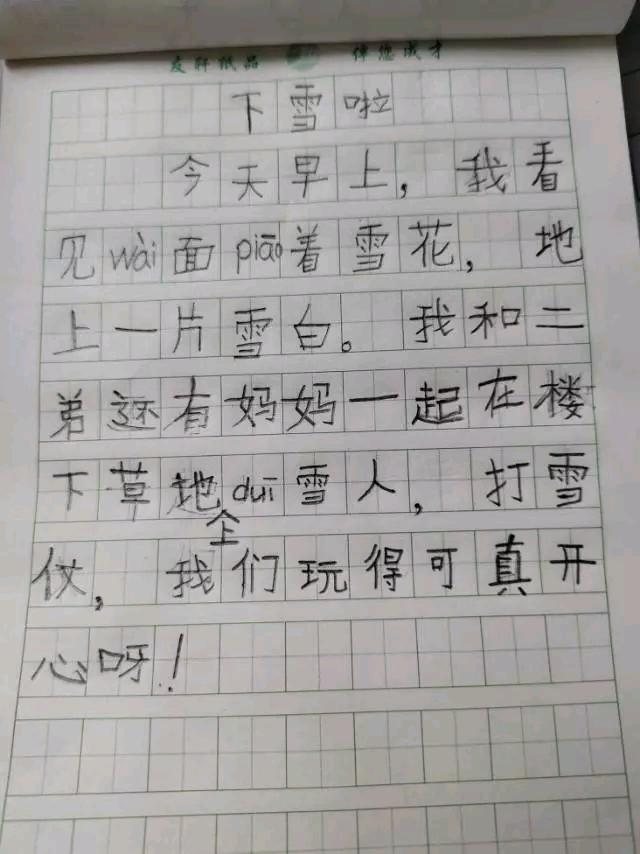 友轩纸品 伴您成才
下雪啦
今天早上，我看
见wài面piāo着雪花，地
上一片雪白。我和二
弟还有妈妈一起在楼
下草地上duī雪人，打雪
仗，我们玩得可真开
心呀！